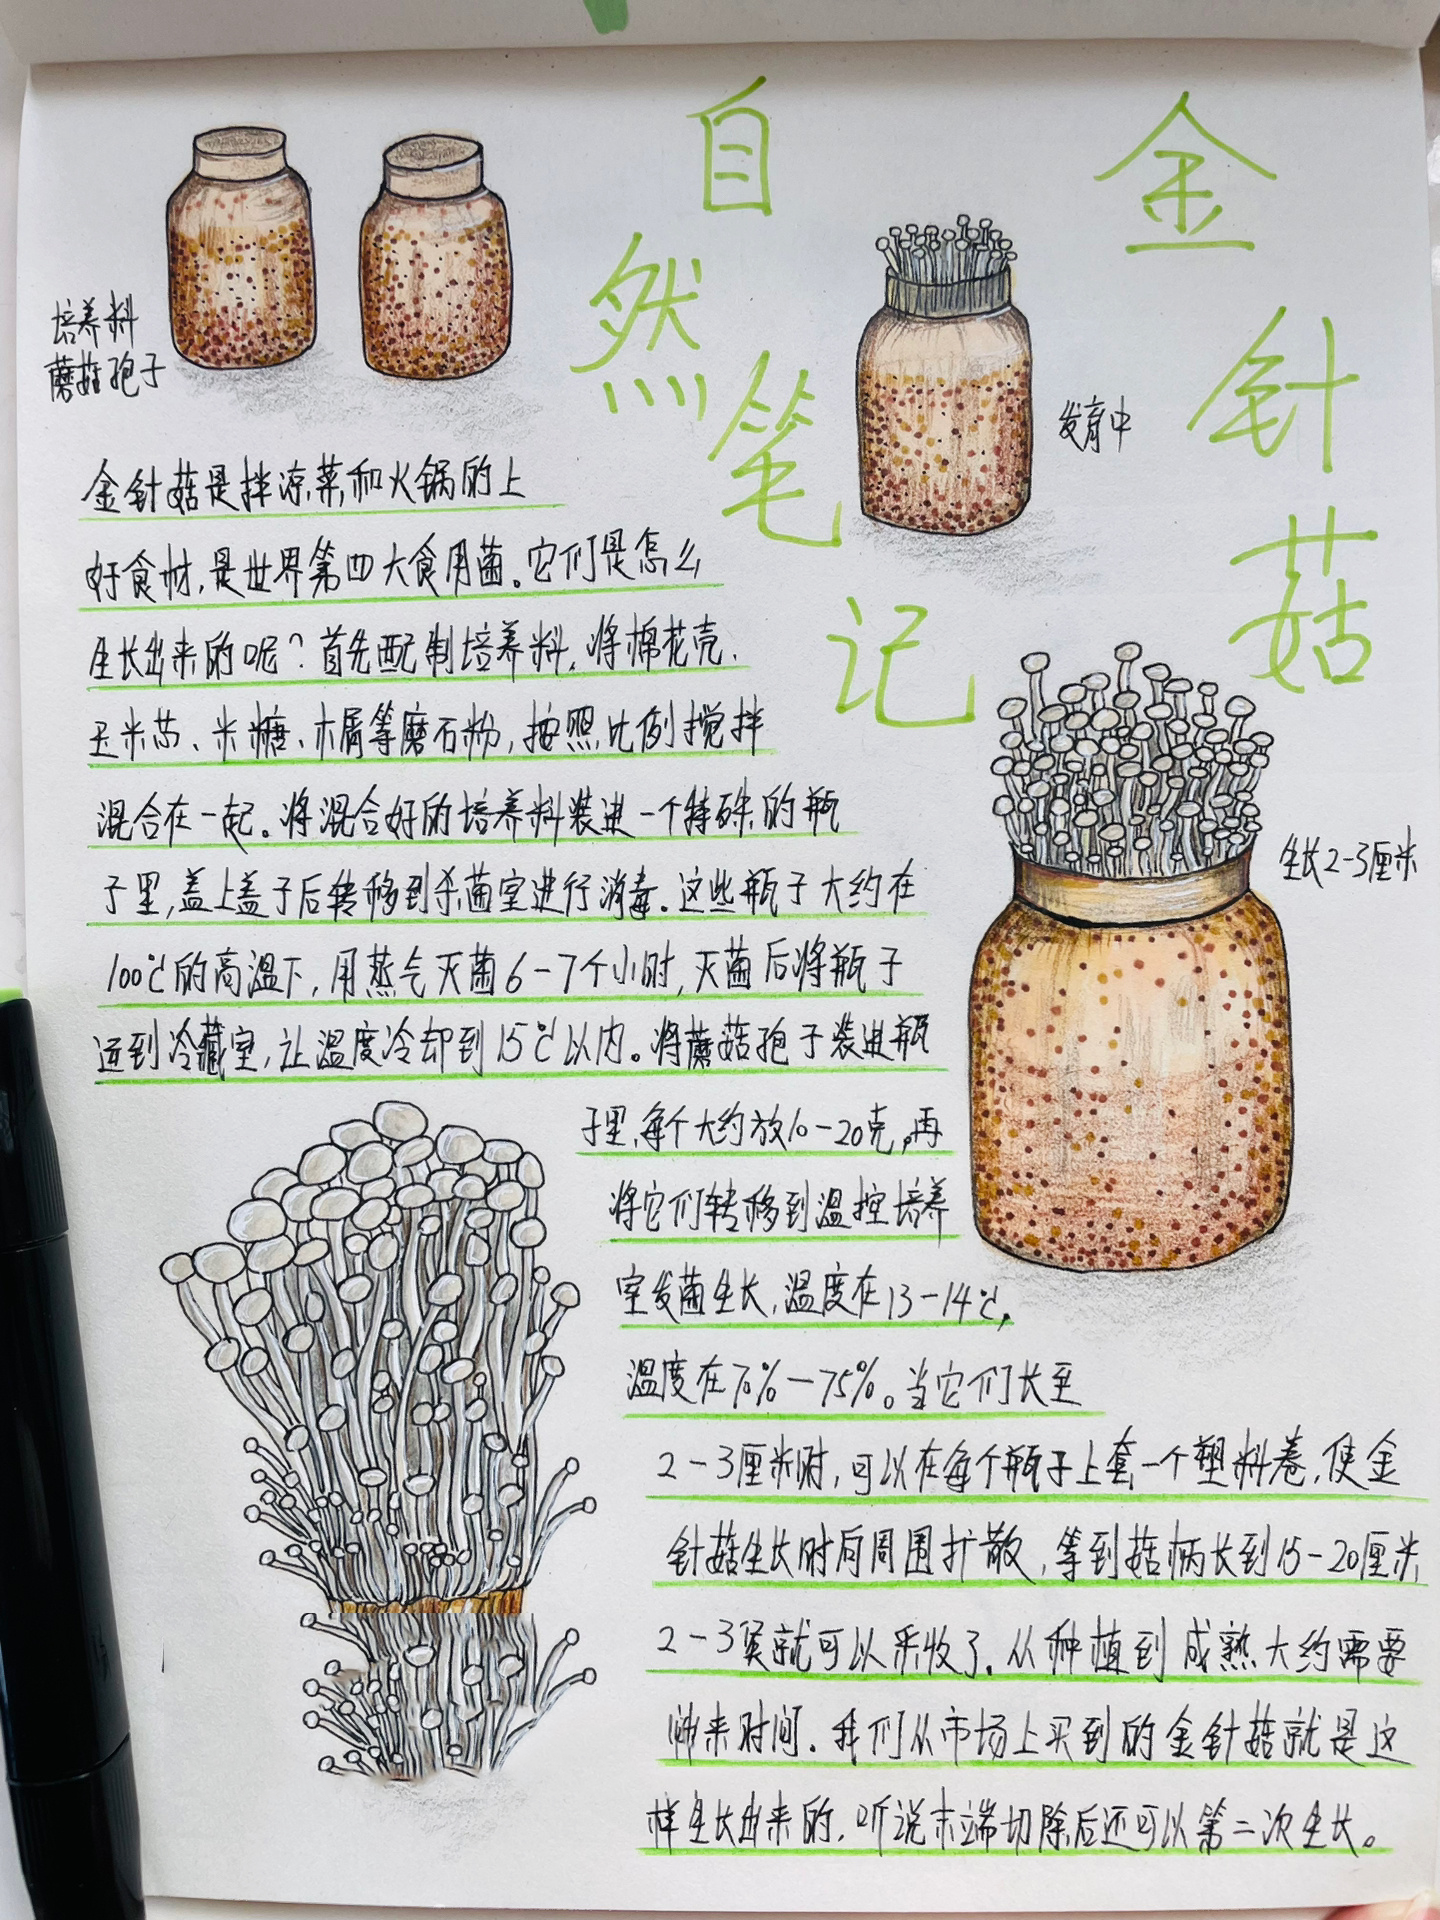 金针菇
自然笔记
培养料
蘑菇孢子
发育中
生长2-3厘米
金针菇是拌凉菜和火锅的上
好食材,是世界第四大食用菌。它们是怎么
生长出来的呢?首先配制培养料,将棉花壳、
玉米芯、米糖、木屑等磨石粉,按照比例搅拌
混合在一起。将混合好的培养料装进一个特殊的瓶
子里,盖上盖子后转移到杀菌室进行消毒。这些瓶子大约在
100℃的高温下,用蒸气灭菌6-7个小时,灭菌后将瓶子
运到冷藏室,让温度冷却到15℃以内。将蘑菇孢子装进瓶
子里,每个大约放10-20克,再
将它们转移到温控培养
室发菌生长,温度在13-14℃,
温度在70%-75%。当它们长至
2-3厘米时,可以在每个瓶子上套一个塑料卷,使金
针菇生长时向周围扩散,等到菇柄长到15-20厘米,
2-3就可以采收了。从种植到成熟大约需要
来时间。我们从市场上买到的金针菇就是这
样生长出来的,听说末端切除后还可以第二次生长。